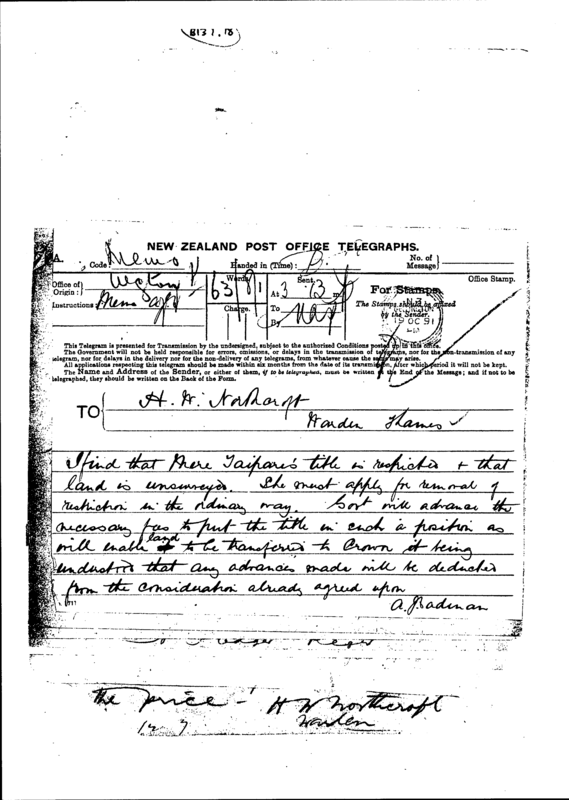 B131.18
NEW ZEALAND POST OFFICE TELEGRAPHS.
Code: Memo
Handed in (Time):
No. of Message
Office of Origin:
Instructions:
Words
63
Charge.
Sent.
At 3
To
By
For Stamps.
The Stamps should be affixed by the Sender.
Office Stamp.
19 OC 91
This Telegram is presented for Transmission by the undersigned, subject to the authorised Conditions posted up in this office.
The Government will not be held responsible for errors, omissions, or delays in the transmission of telegrams, nor for the non-transmission of any
telegram, nor for delays in the delivery nor for the non-delivery of any telegrams, from whatever cause the same may arise.
All applications respecting this telegram should be made within six months from the date of its transmission, after which period it will not be kept.
The Name and Address of the Sender, or either of them, if to be telegraphed, must be written at the End of the Message; and if not to be
telegraphed, they should be written on the Back of the Form.
TO H. W. Northcroft
Warden Thames
I find that Mere Taipari's title is restricted + that
land is unsurveyed. She must apply for removal of
restriction in the ordinary way. Govt will advance the
necessary fees to put the title in such a position as
will enable land to be transferred to Crown it being
understood that any advances made will be deducted
from the consideration already agreed upon
the price - H W Northcroft
Warden